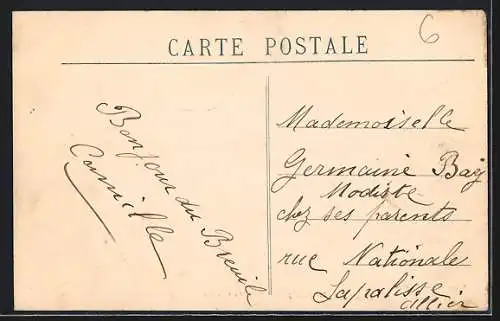 CARTE POSTALE
6
Bonjour du Breuil
Camille
Mademoiselle
Germaine Bay
Modiste
chez ses parents
rue Nationale
Lapalisse
Allier